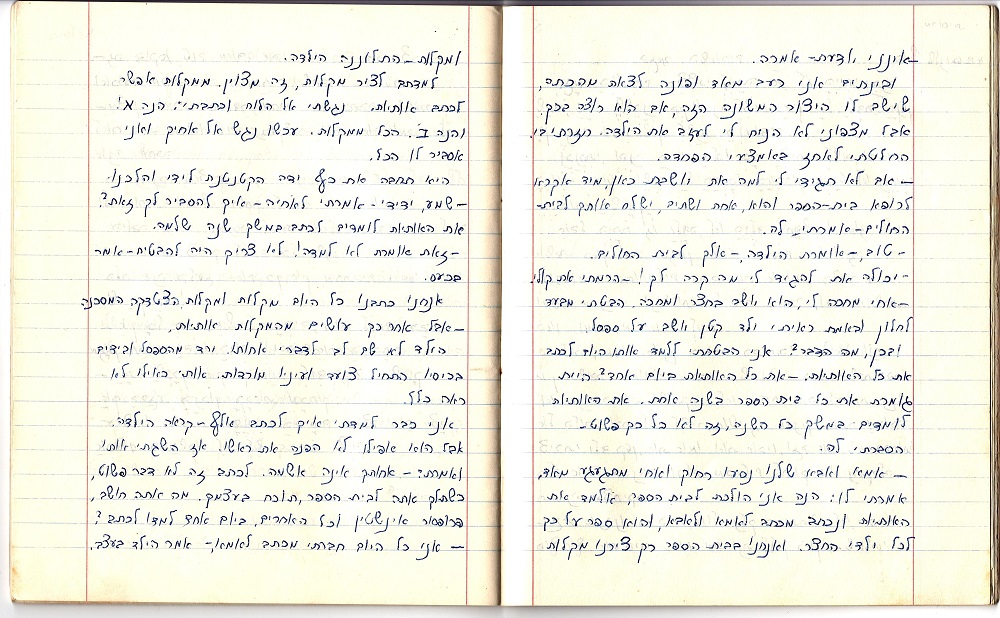 -אינני יודעת- אמרה.
ובינתיים אני רעב מאד ופונה לצאת מהכתב,
שישב לו היצור המשונה הזה, אם הוא רוצה בכך.
אבל מצפוני לא הניח לי לעזב את הילדה. חזרתי בי.
החלטתי לאחז באמצעי הפחדה.
-אם לא תגידי לי למה את יושבת כאן, מיד אקרא
לרופא בית-הספר והוא, אחת ושתים, ישלח אותך לבית-
החולים-אמרתי לה.
-טוב,-אומרת הילדה,-אלך לבית החולים.
-יכולה את להגיד לי מה קרה לך!-הרמתי את קולי.
-אחי מחכה לי, הוא יושב בחצר ומחכה. הבטתי מבעד
לחלון ובאמת ראיתי ילד קטן יושב על ספסל.
ובכן, מה הדבר? אני הבטחתי ללמד אותו היום לכתב
את כל האותיות. -את כל האותיות ביום אחד? היית
גומרת את כל בית הספר בשנה אחת. את האותיות
לומדים במשך כל השנה, זה לא כל כך פשוט-
הסברתי לה.
-אמא ואבא שלנו נסעו רחוק ואחי מתגעגע מאד,
אמרתי לו: הנה אני הולכת לבית הספר, אלמד את
האותיות ונכתב מכתב לאמא ולאבא, והוא ספר על כך
לכל ילדי החצר. ואנחנו בבית הספר רק ציירנו מקלות
ומקלות-התלוננה הילדה.
למדתם לציר מקלות, זה מצוין. ממקלות אפשר
לכתב אותיות. נגשתי אל הלוח וכתבתי: הנה א'
והנה ב'. הכל ממקלות. עכשו נגש אל אחיך ואני
אסביר לו הכל.
היא תחבה את כף ידה הקטנטנת לידי והלכנו.
-שמע, ידידי-אמרתי לאחיה-איך להסביר לך זאת?
את האותיות לומדים לכתב במשך שנה שלמה.
-זאת אומרת לא למדה! לא צריך היה להבטיח-אמר
בכעס.
אנחנו כתבנו כל היום מקלות ומקלות הצטדקה המסכנה
-אבל אחר כך עושים מהמקלות אותיות,
הילד לא שם לב לדברי אחותו. ירד מהספסל ובידים
בכיסיו התחיל צועד ועיניו מורדות. אותי כאילו לא
ראה כלל.
אני כבר למדתי איך לכתב אלף-קראה הילדה.
אבל הוא אפילו לא הפנה את ראשו. אז השגתי אותו
ואמרתי:-אחותך אינה אשמה. לכתב זה לא דבר פשוט,
כשתלך אתה לבית הספר, תוכח בעצמך. מה אתה חושב,
פרופסור אינשטין וכל האחרים, ביום אחד למדו לכתב?
-אני כל היום חברתי מכתב לאמא,-אמר הילד בעצב.